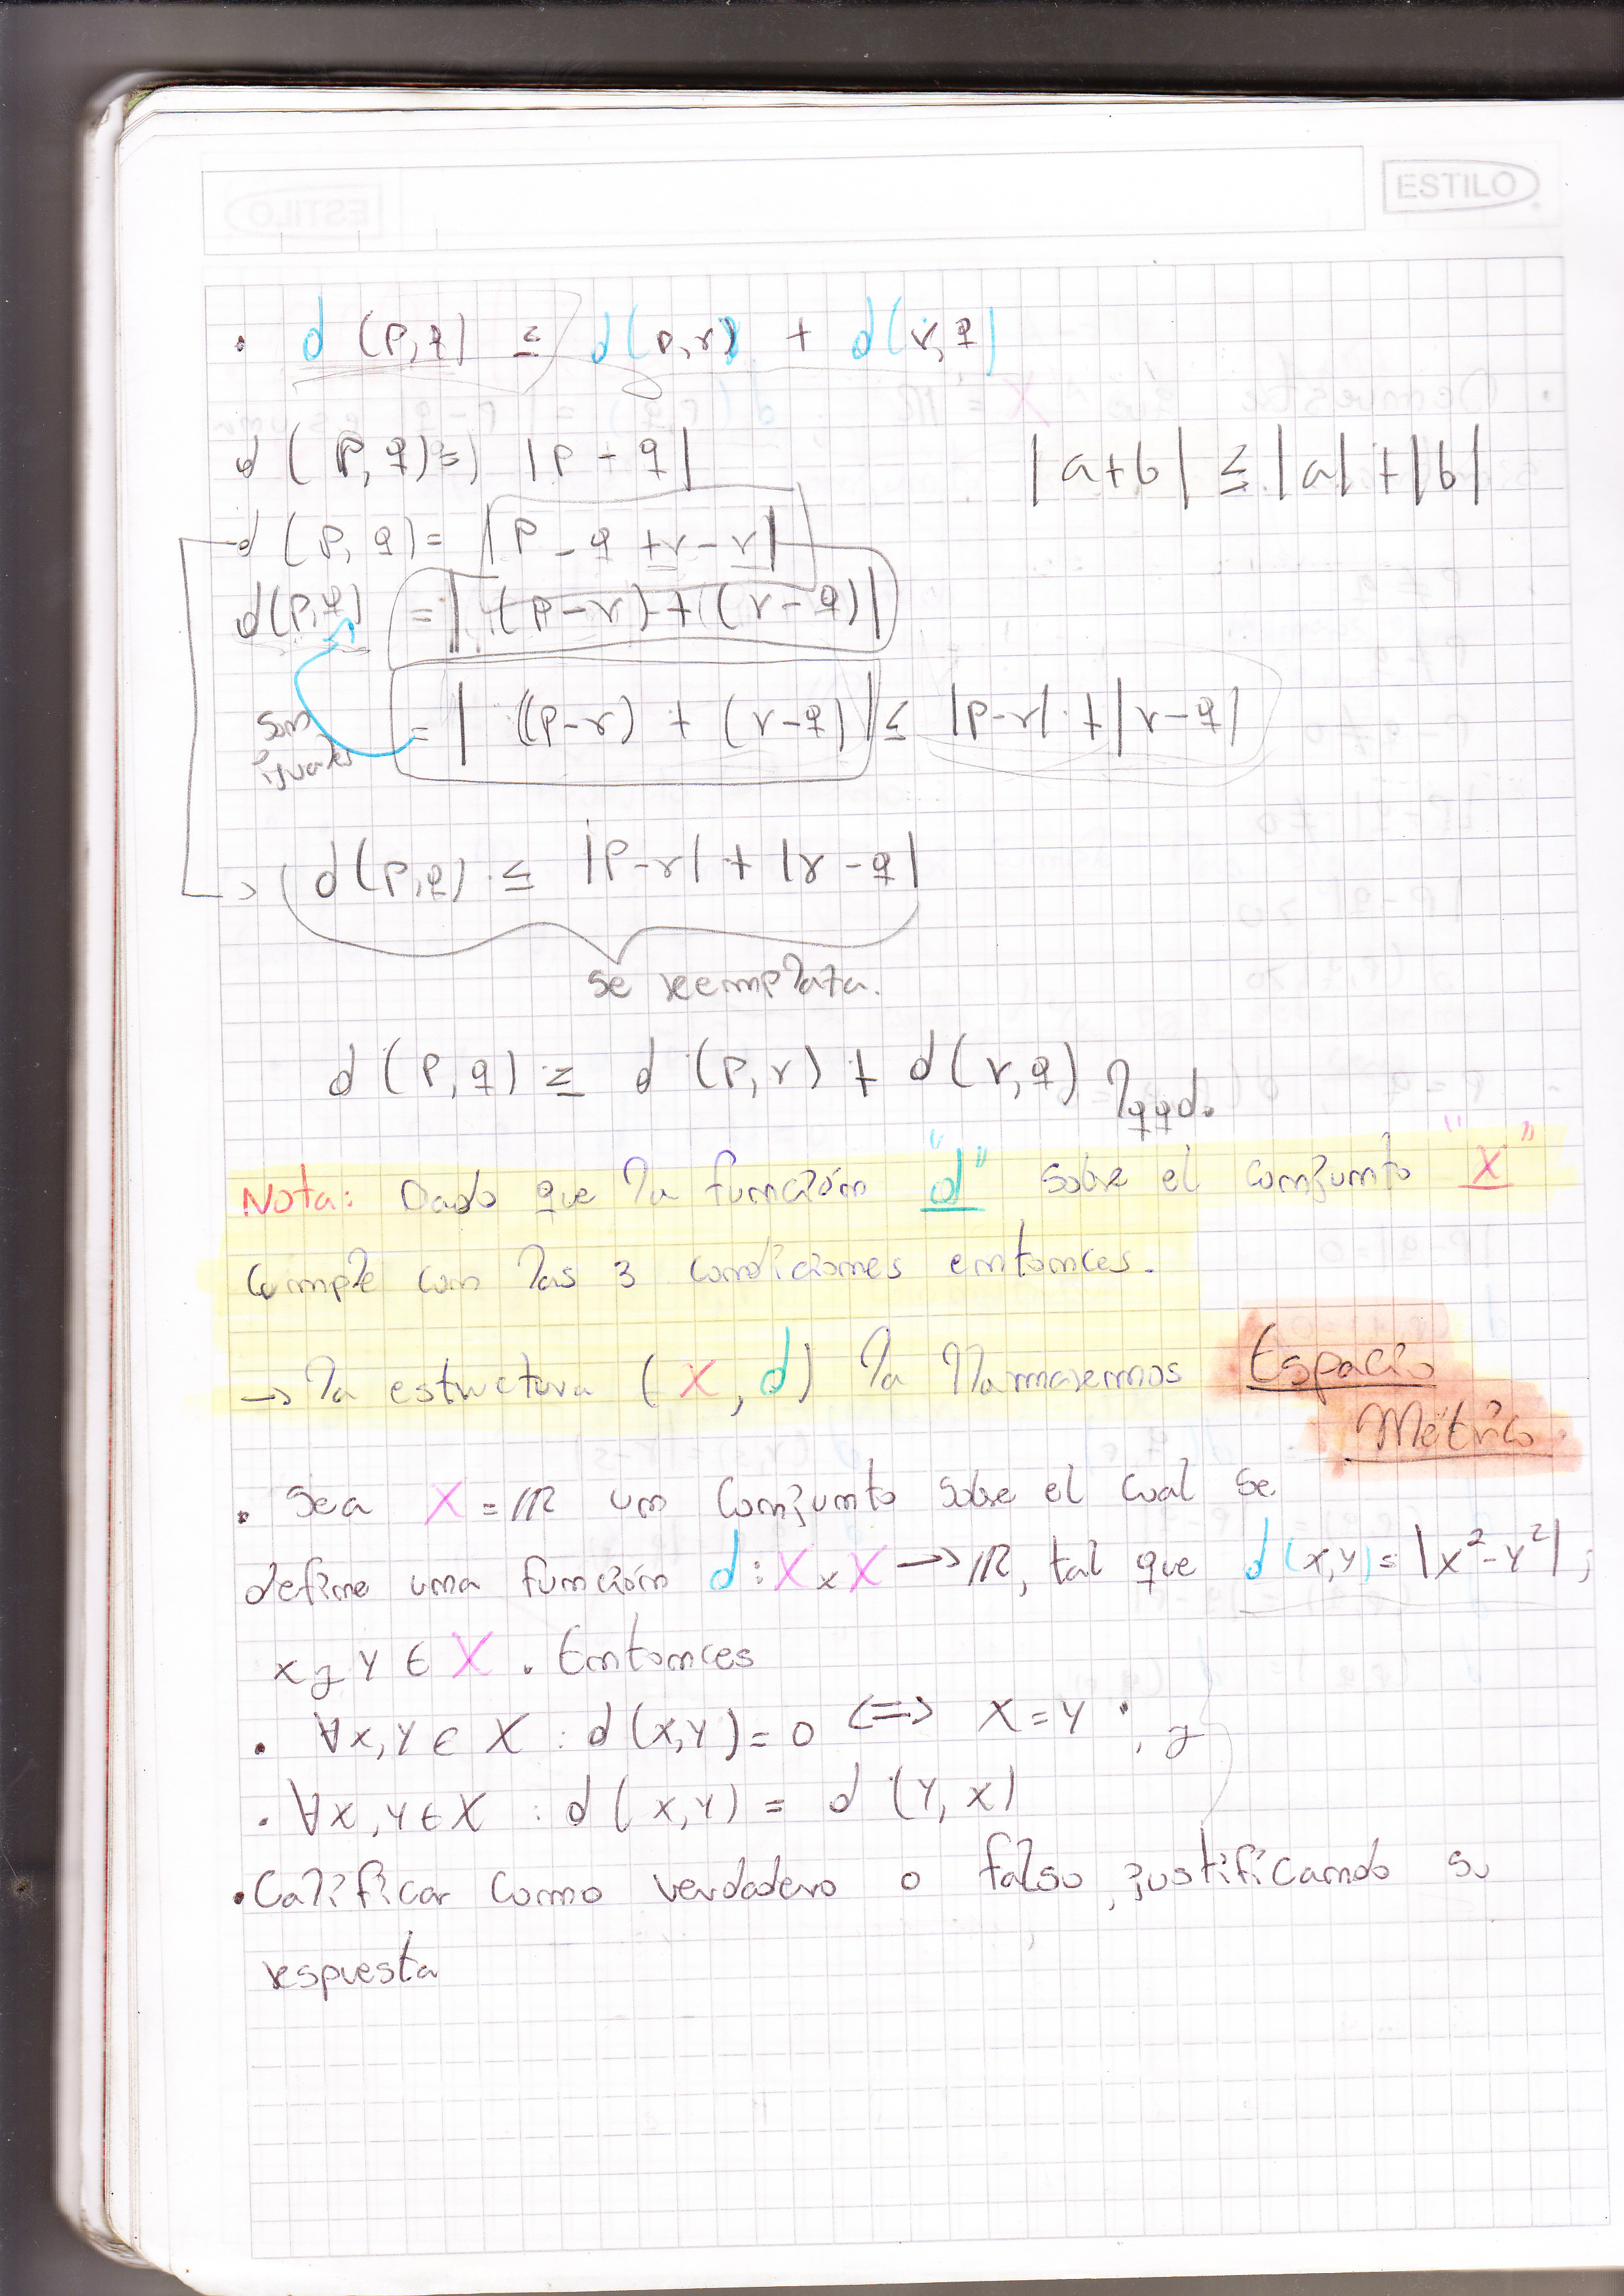 ESTILO
• d (p,q) ≤ d(p,r) + d(r,q)
d (p,q) = |p - q|
|a+b| ≤ |a|+|b|
d (p,q) = |p - q + r - r|
d(p,q) = |(p-r) + (r-q)|
= | ((p-r) + (r-q)| ≤ |p-r| + |r-q|
son iguales
→ d(p,q) ≤ |p-r| + |r-q|
se reemplaza.
d (p,q) ≤ d (p,r) + d(r,q) lqqd.
Nota: Dado que la función "d" sobre el conjunto "X"
cumple con las 3 condiciones entonces.
→ la estructura (X, d) la llamaremos Espacio
Métrico.
• Sea X = ℝ un conjunto sobre el cual se
define una función d: X x X → ℝ, tal que d(x,y) = |x²-y²|;
x y y ∈ X. Entonces
• ∀x,y ∈ X : d(x,y) = 0 <=> x = y ; y
• ∀x,y ∈ X : d(x,y) = d(y,x)
• Calificar como verdadero o falso, justificando su
respuesta